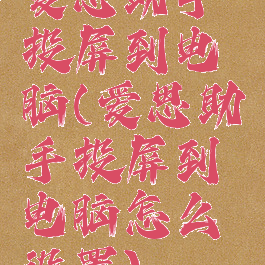 爱思助手
投屏到电
脑(爱思助
手投屏到
电脑怎么
设置)